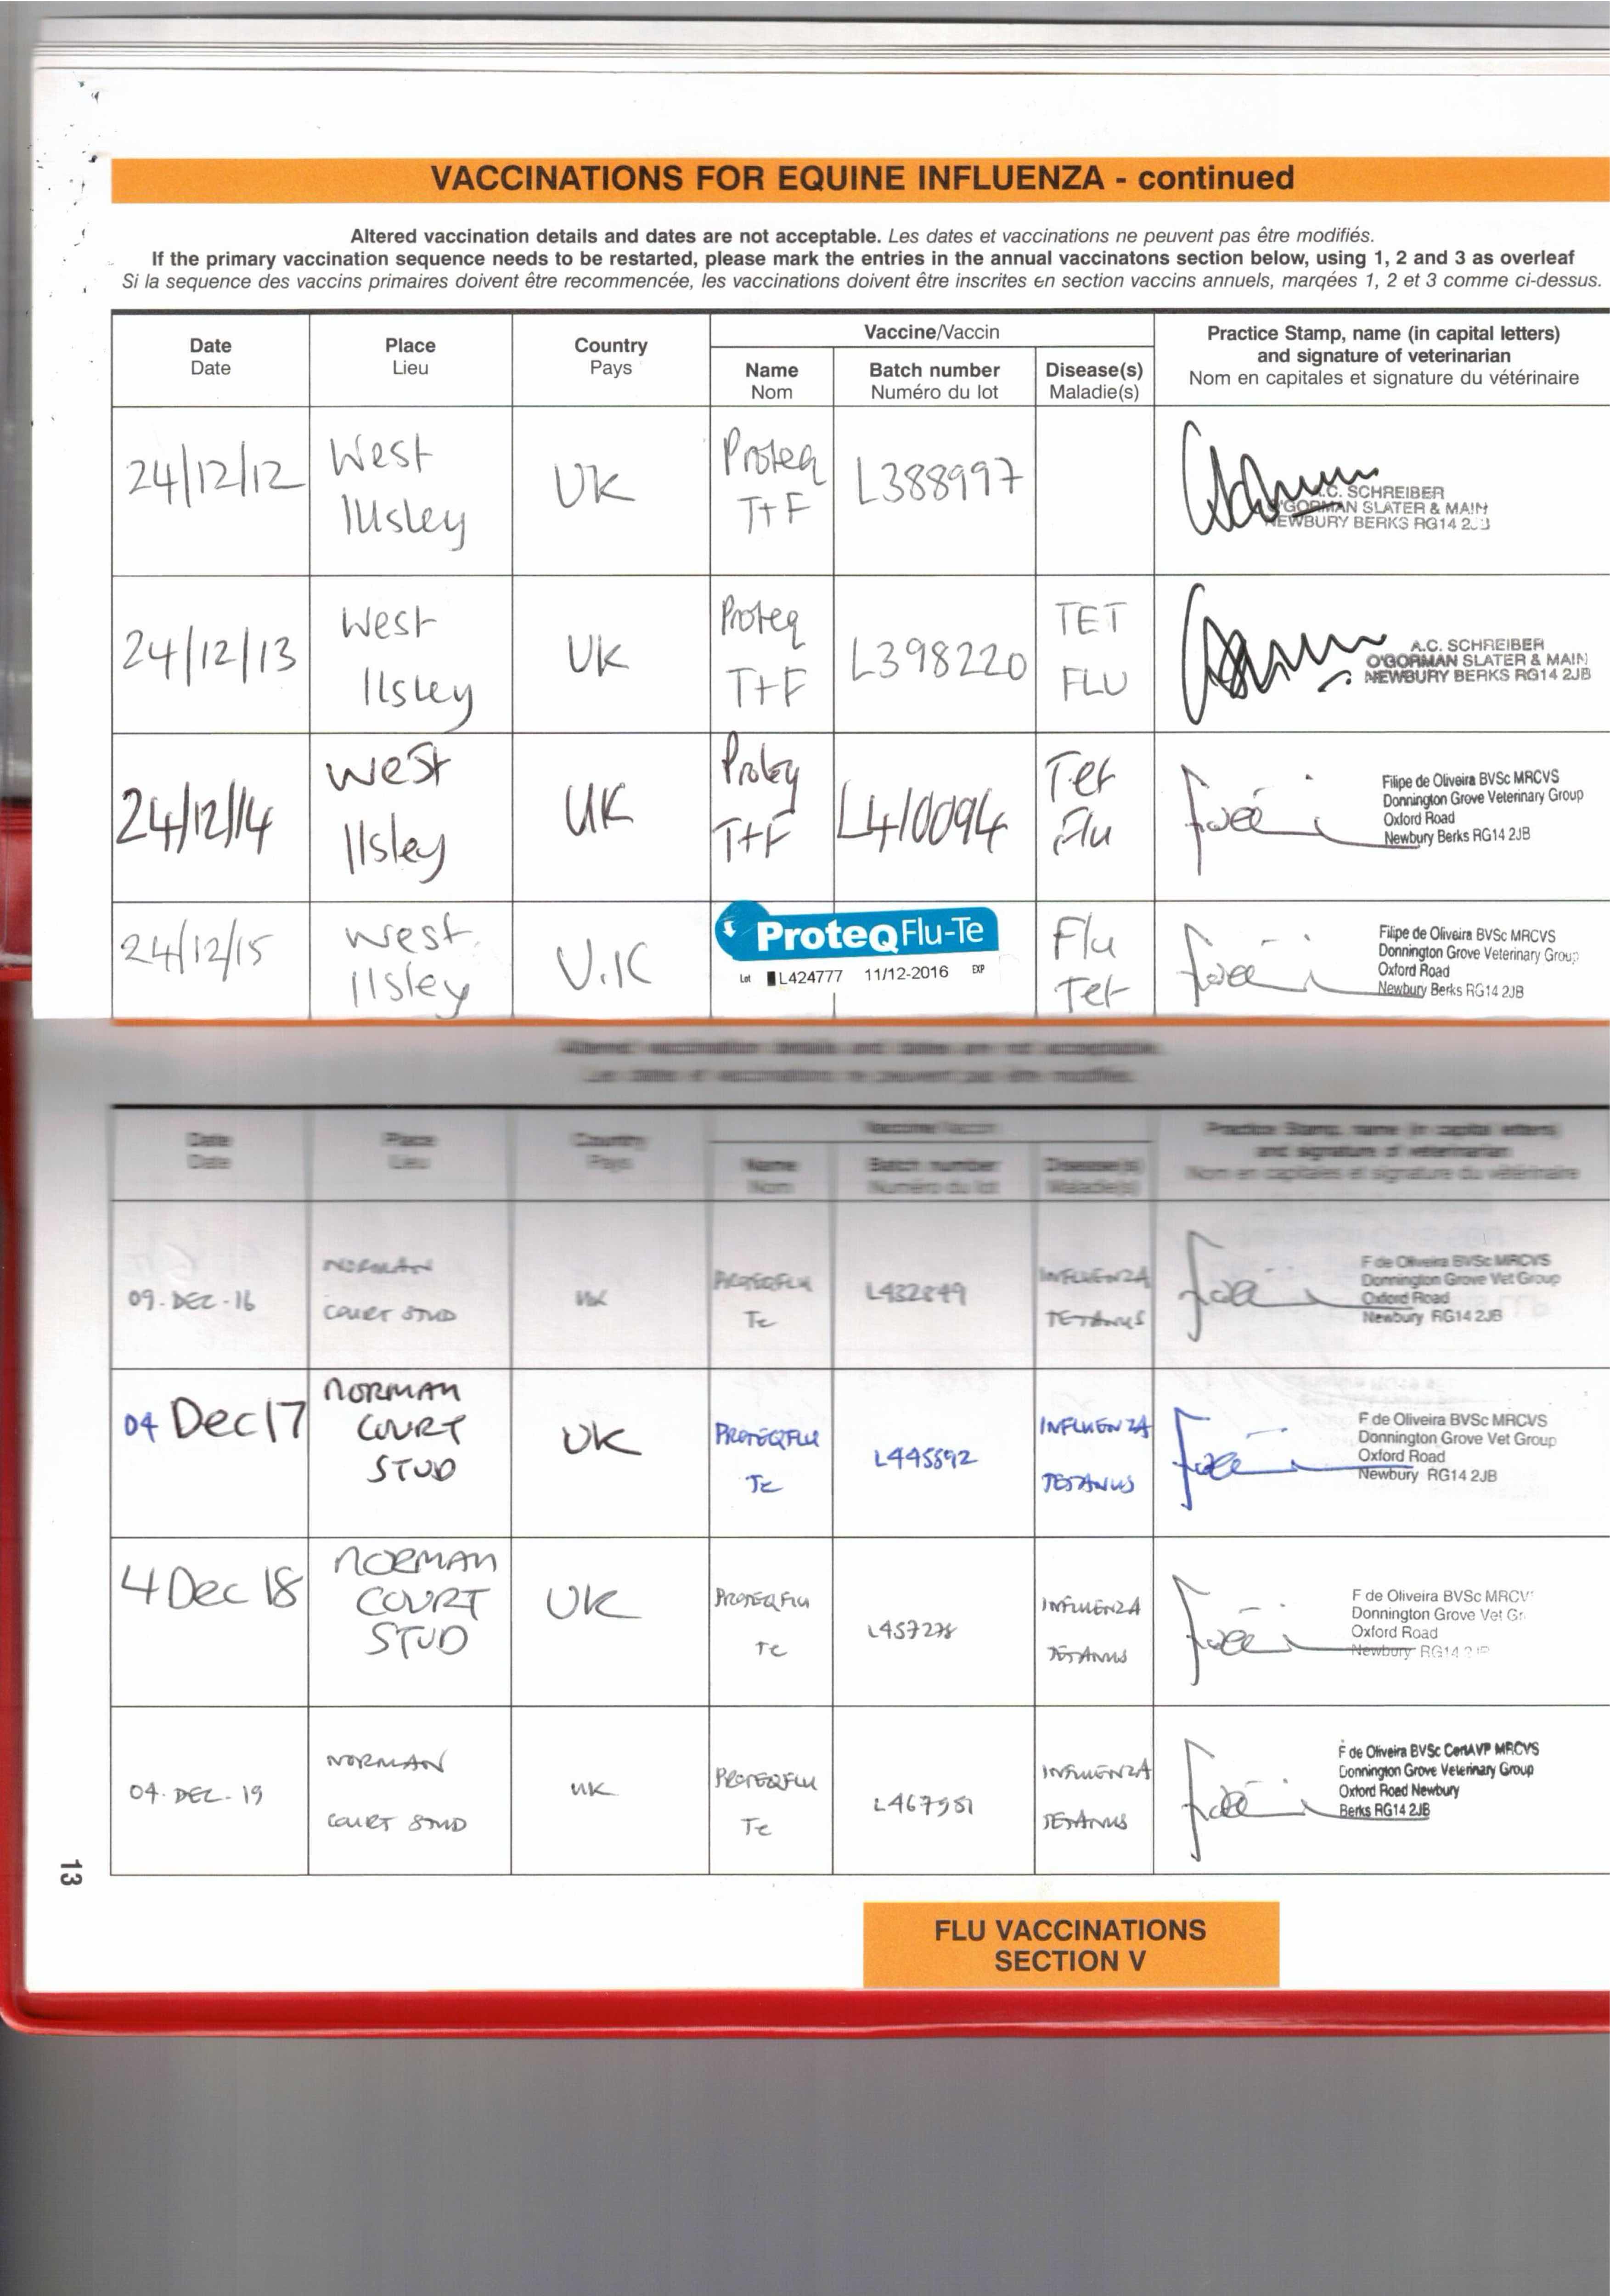 VACCINATIONS FOR EQUINE INFLUENZA - continued
Altered vaccination details and dates are not acceptable. Les dates et vaccinations ne peuvent pas être modifiés.
If the primary vaccination sequence needs to be restarted, please mark the entries in the annual vaccinatons section below, using 1, 2 and 3 as overleaf
Si la sequence des vaccins primaires doivent être recommencée, les vaccinations doivent être inscrites en section vaccins annuels, marqées 1, 2 et 3 comme ci-dessus.
Date
Date
Place
Lieu
Country
Pays
Vaccine/Vaccin
Name
Nom
Batch number
Numéro du lot
Disease(s)
Maladie(s)
Practice Stamp, name (in capital letters)
and signature of veterinarian
Nom en capitales et signature du vétérinaire
24/12/12
West
Illsley
UK
Proteq
T+F
L388997
A.C. SCHREIBER
O'GORMAN SLATER & MAIN
NEWBURY BERKS RG14 2JB
24/12/13
West
Ilsley
UK
Proteq
T+F
L398220
TET
FLU
A.C. SCHREIBER
O'GORMAN SLATER & MAIN
NEWBURY BERKS RG14 2JB
24/12/14
West
Ilsley
UK
Proteq
T+F
L410094
Tet
Flu
Filipe de Oliveira BVSc MRCVS
Donnington Grove Veterinary Group
Oxford Road
Newbury Berks RG14 2JB
24/12/15
West
Ilsley
U.K
ProteqFlu-Te
Lot L424777 11/12-2016 EXP
Flu
Tet
Filipe de Oliveira BVSc MRCVS
Donnington Grove Veterinary Group
Oxford Road
Newbury Berks RG14 2JB
Altered vaccination details and dates are not acceptable.
Les dates et vaccinations ne peuvent pas être modifiés.
Date
Date
Place
Lieu
Country
Pays
Vaccine/Vaccin
Name
Nom
Batch number
Numéro du lot
Disease(s)
Maladie(s)
Practice Stamp, name (in capital letters)
and signature of veterinarian
Nom en capitales et signature du vétérinaire
09. DEC - 16
NORMAN
COURT STUD
UK
PROTEQFLU
Te
L432849
INFLUENZA
TETANUS
F de Oliveira BVSc MRCVS
Donnington Grove Vet Group
Oxford Road
Newbury RG14 2JB
04 Dec 17
NORMAN
COURT
STUD
UK
PROTEQFLU
Te
L445892
INFLUENZA
TETANUS
F de Oliveira BVSc MRCVS
Donnington Grove Vet Group
Oxford Road
Newbury RG14 2JB
4 Dec 18
NORMAN
COURT
STUD
UK
PROTEQFLU
Te
L457278
INFLUENZA
TETANUS
F de Oliveira BVSc MRCV
Donnington Grove Vet Gr
Oxford Road
Newbury RG14 2JB
04. DEC - 19
NORMAN
COURT STUD
UK
PROTEQFLU
Te
L467951
INFLUENZA
TETANUS
F de Oliveira BVSc CertAVP MRCVS
Donnington Grove Veterinary Group
Oxford Road Newbury
Berks RG14 2JB
13
FLU VACCINATIONS
SECTION V